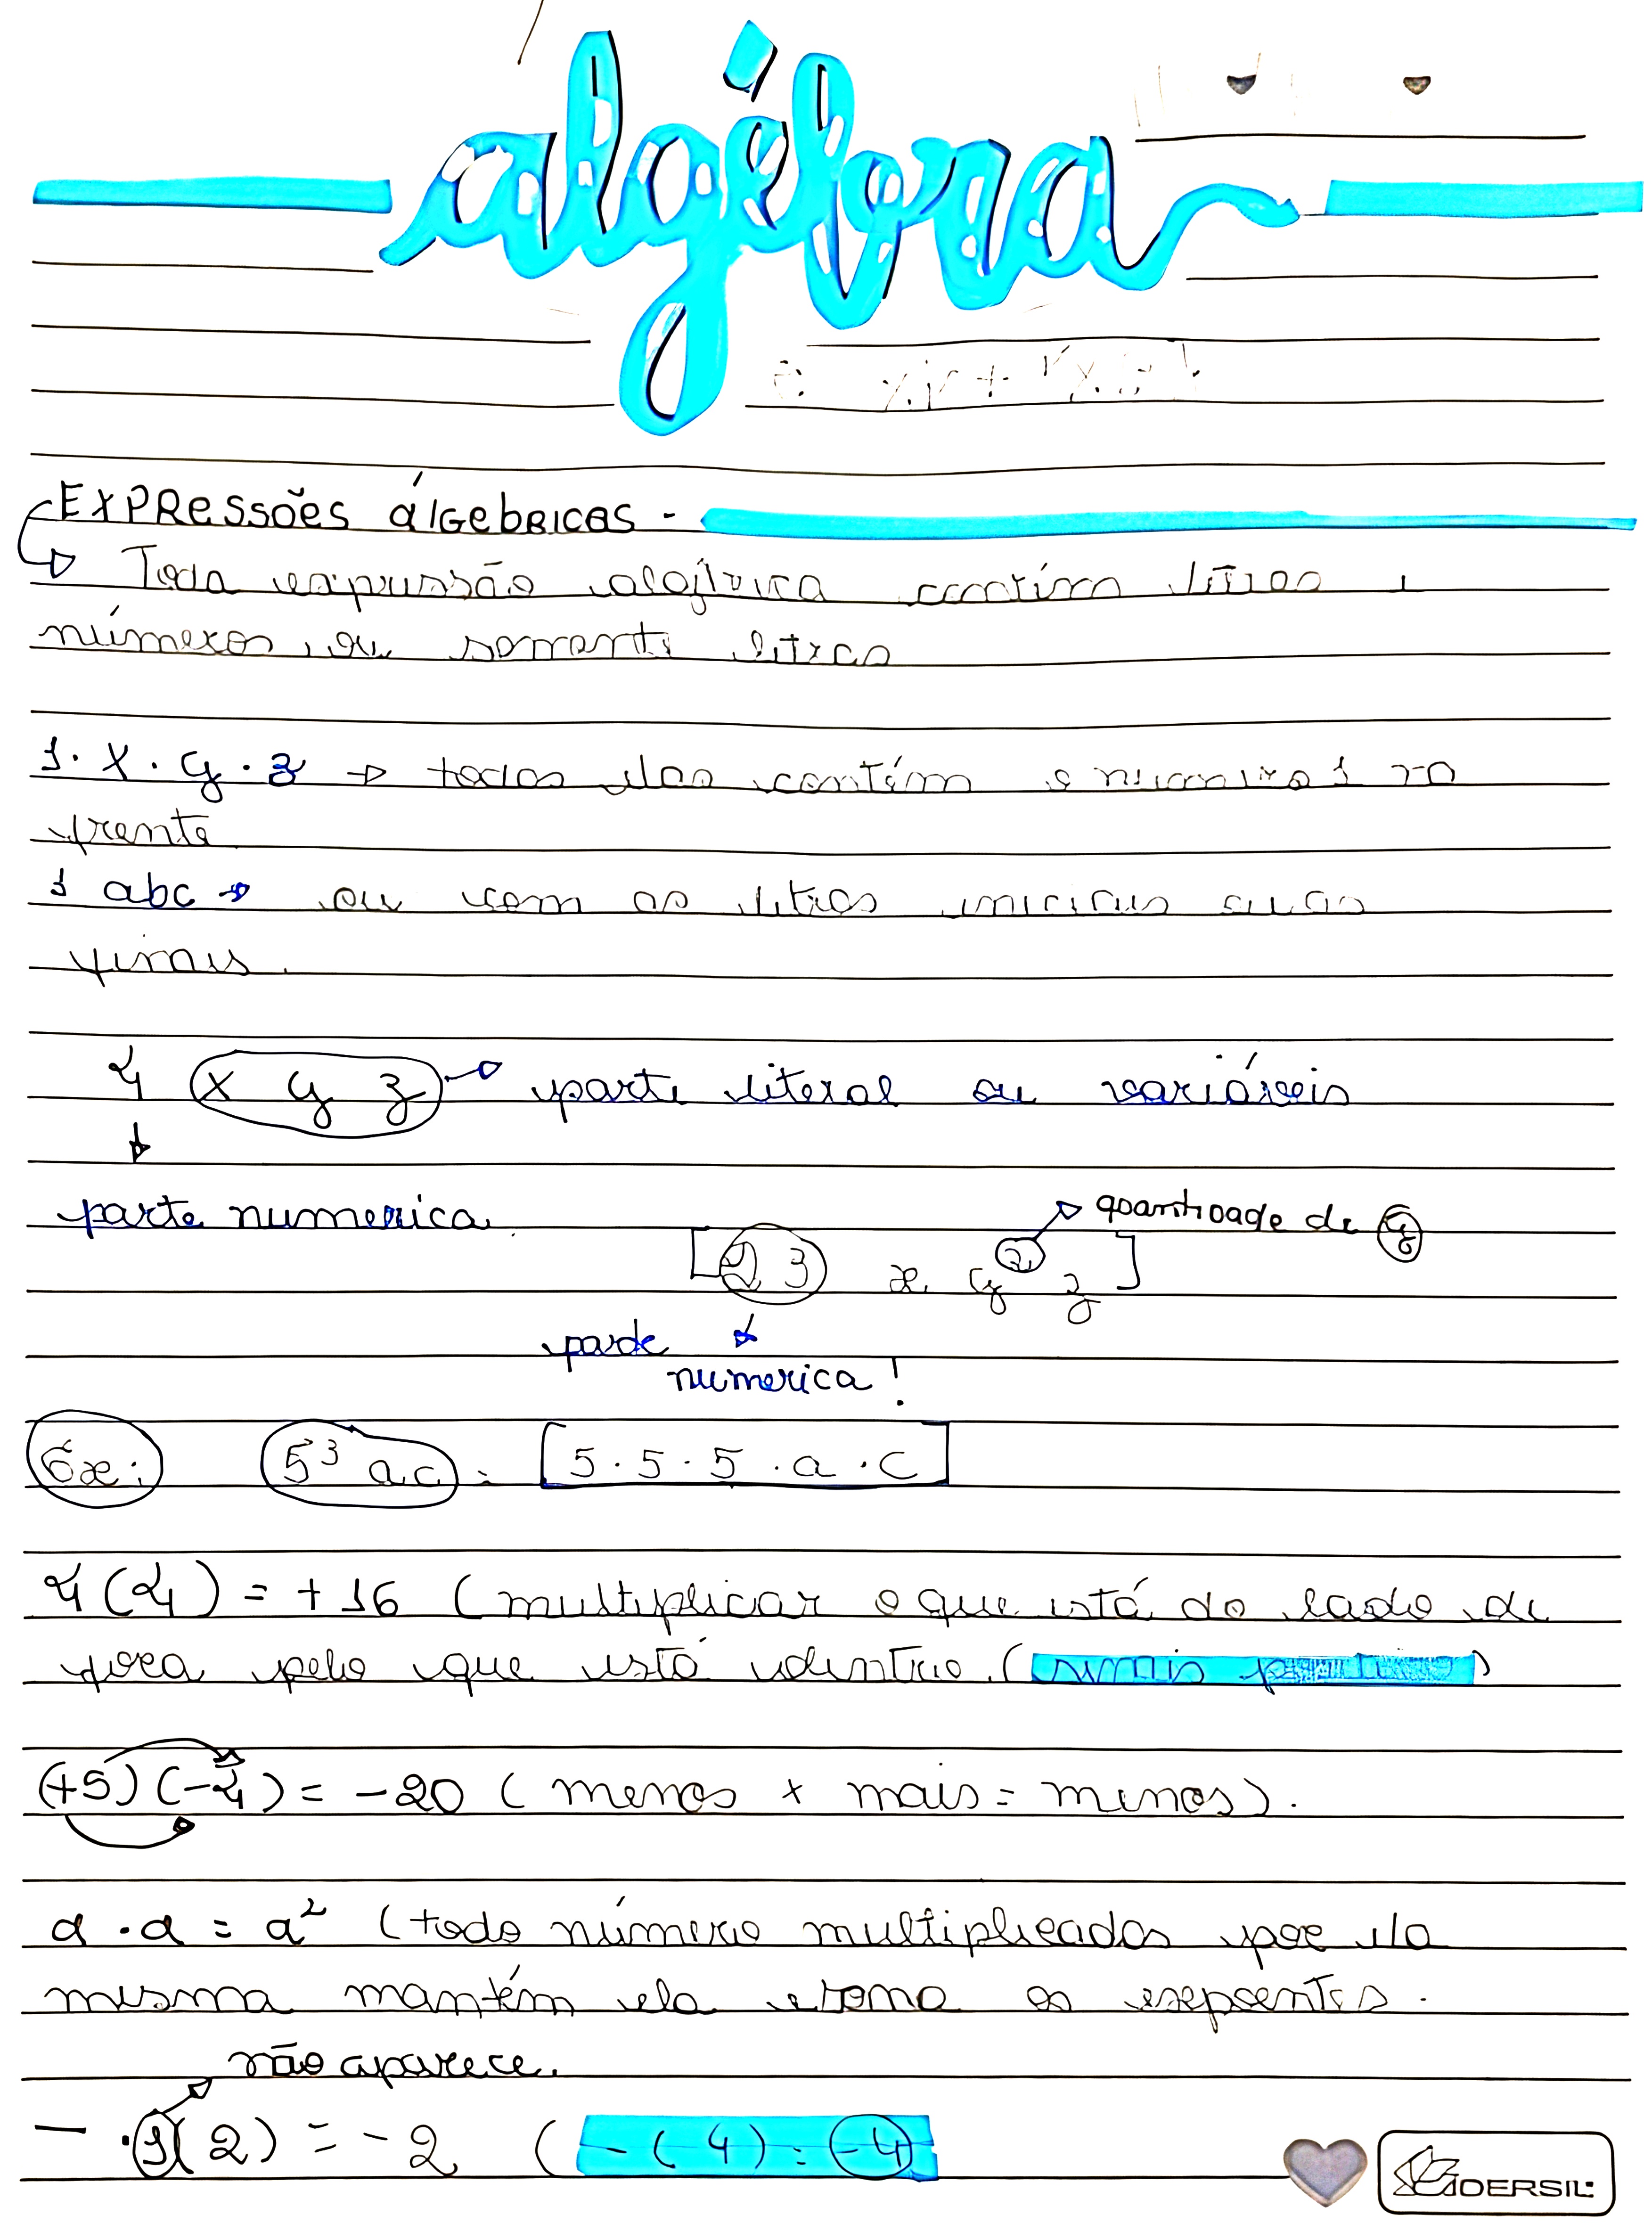 álgébra
Expressões álgebricas -
Toda expressão algébrica contém letras e
números, ou somente letras
1 · x · y · z → todas elas contém o numero 1 na
frente
1 abc → ou com as letras iniciais ou as
finais.
4 x y z → parte literal ou variáveis
parte numerica.
quantidade de y
[23 x y² z]
parte
numerica!
6x; 5³ a.c = [5 · 5 · 5 · a · c]
4 (4) = +16 (multiplicar o que está do lado de
fora pelo que está dentro. (sinais)
(+5) (-4) = -20 (menos x mais = menos).
a · a = a² (todo número multiplicados por ela
mesma mantém ela e soma os expoentes.
não aparece.
- · 1(2) = -2 (-(4) = -4
IDERSIL